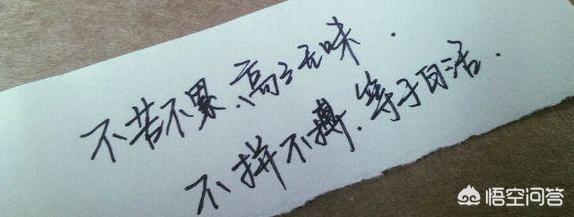 不苦不累、高三无味.
不拼不搏、等于白活.
悟空问答